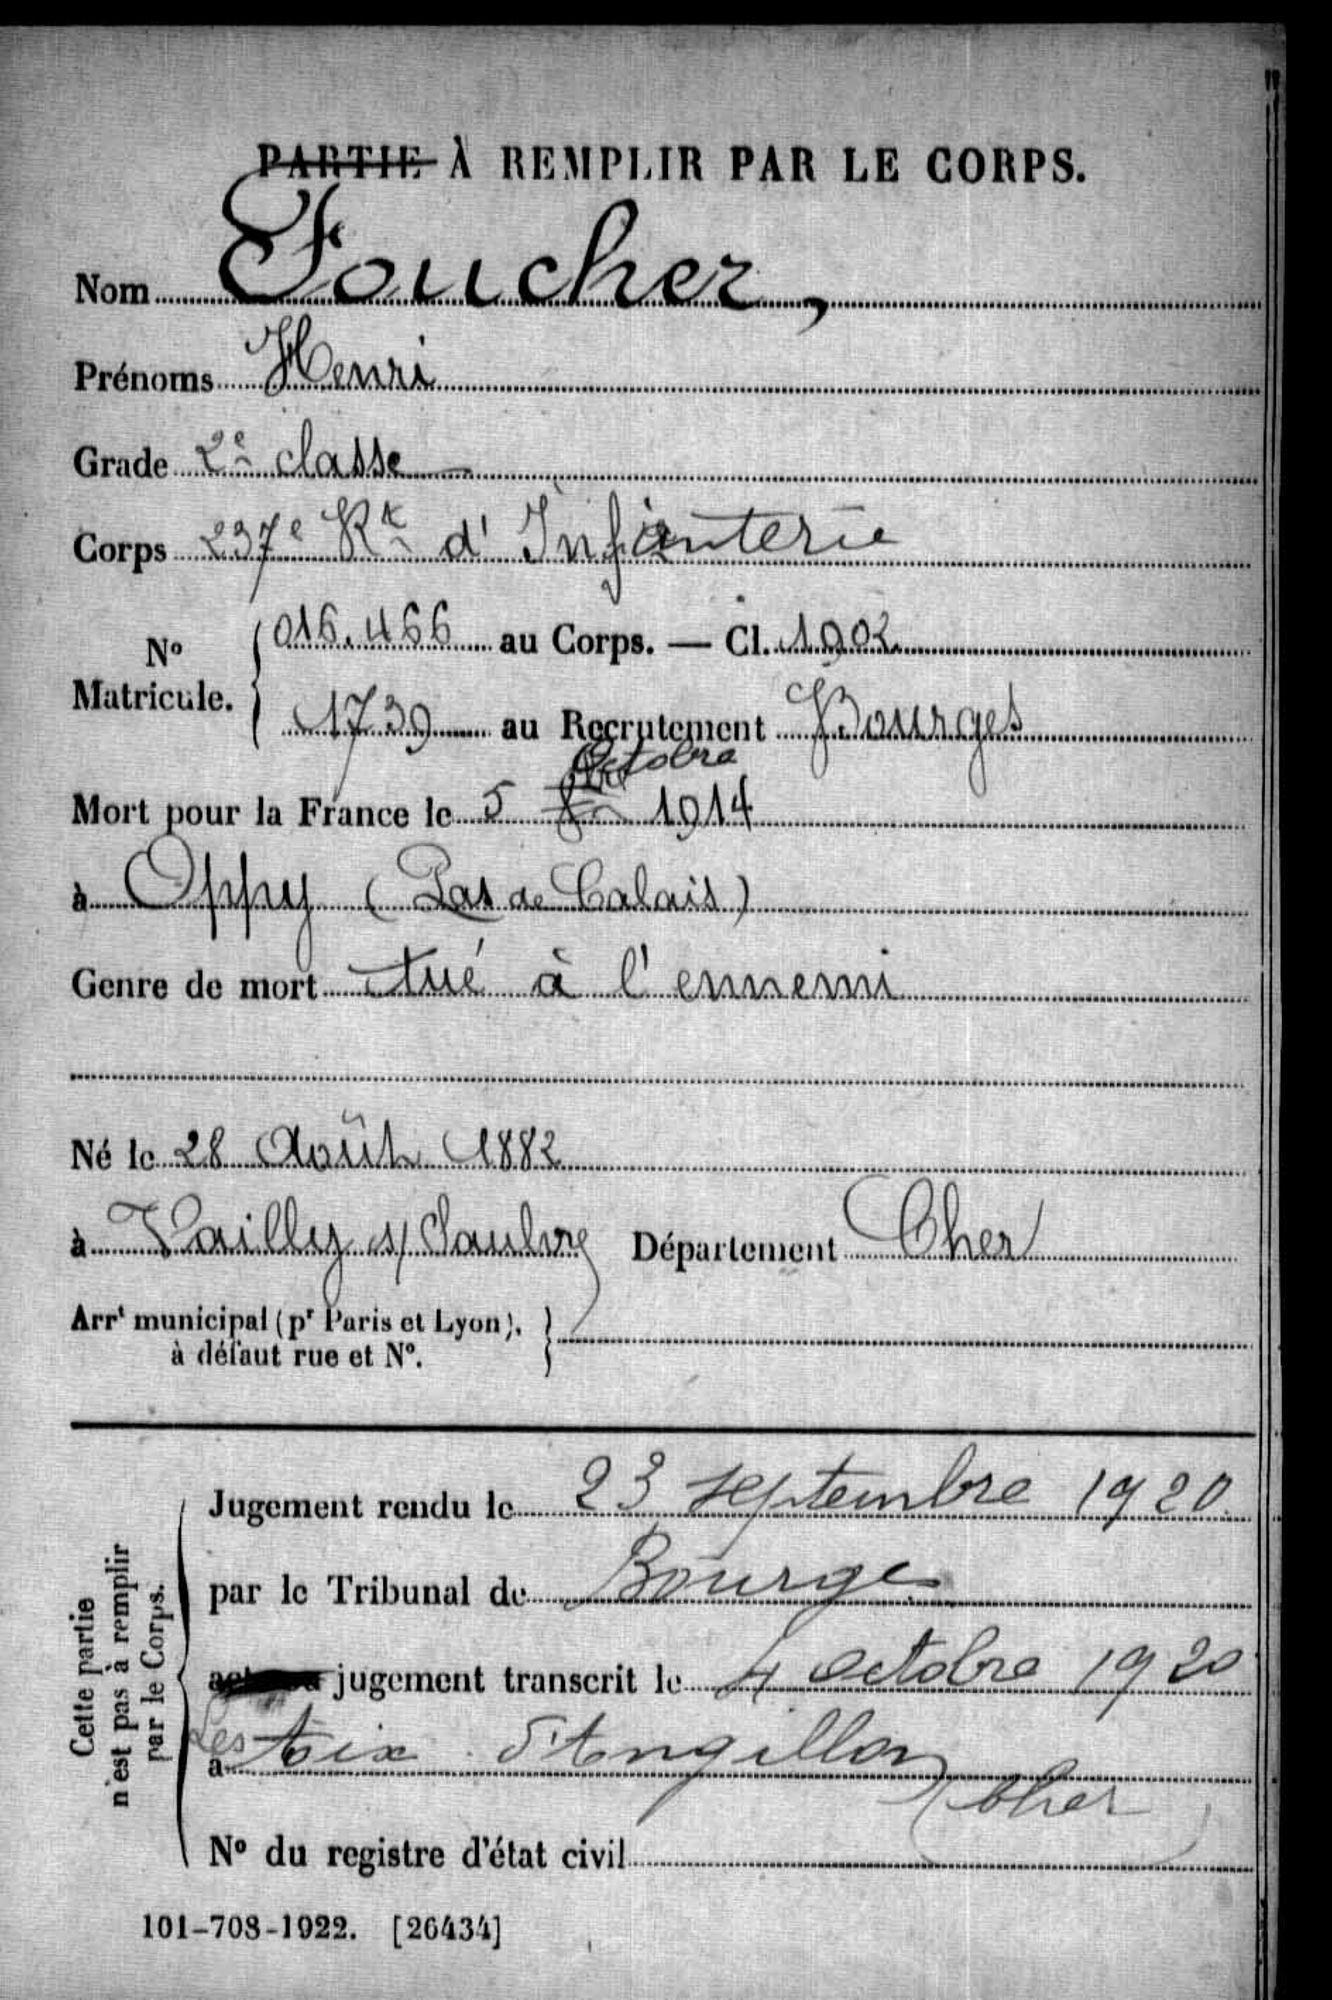 PARTIE À REMPLIR PAR LE CORPS.
Nom Foucher,
Prénoms Henri
Grade 2e classe
Corps 237e Rt d'Infanterie
No Matricule. 016.466 au Corps. — Cl. 1902
1739 au Recrutement Bourges
Octobre
Mort pour la France le 5 1914
à Oppy (Pas de Calais)
Genre de mort tué à l'ennemi
Né le 28 Août 1882
à Vailly s/ Sauldre Département Cher
Arrt municipal (pr Paris et Lyon),
à défaut rue et No.
Cette partie
n'est pas à remplir
par le Corps.
Jugement rendu le 23 septembre 1920
par le Tribunal de Bourges
jugement transcrit le 4 octobre 1920
à Les Aix d'Angillon
(Cher)
No du registre d'état civil
101-708-1922. [26434]